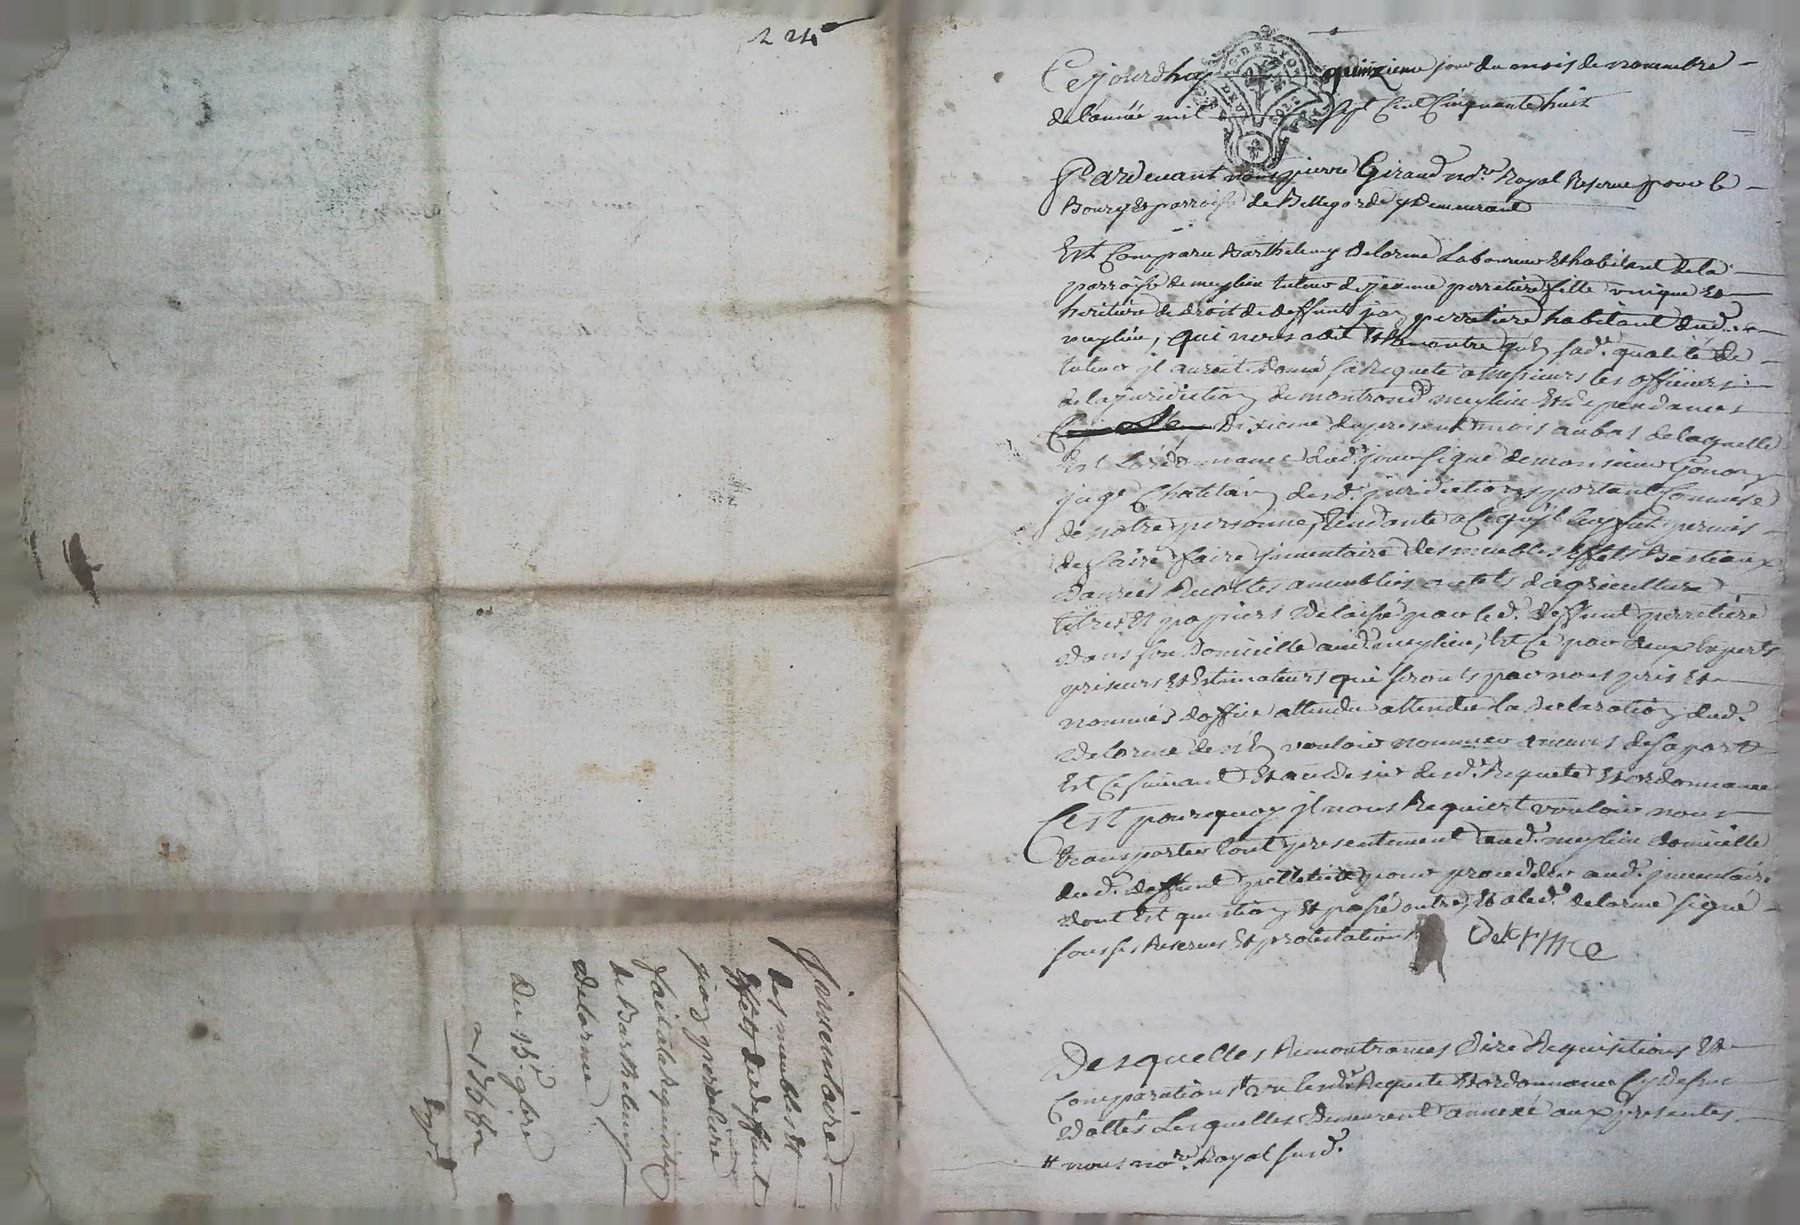 224
Inventaire
des meubles et
effets du deffunt
jean perretiere
fait a la requisition
de Barthelemy
delorme
Du 15e 9bre
1758
Expé
Cejourdhuy quinzieme jour du mois de novembre
de l'année mil sept Cent Cinquante huit
Pardevant nous pierre Giraud nore Royal Reservé pour le
Bourg et parroisse de Bellegarde y demeurant
Est Comparu Barthelemy Delorme Laboureur et habitant de la
parroisse de meylieu tuteur de jeanne perretiere fille unique et
heritiere de droit de deffunt jean perretiere habitant dud.
meylieu, qui nous a dit et Remontré qu'en sade qualité de
tuteur il auroit donné sa Requete a messieurs les officiers
de la juridiction de montrond meylieu et dependances
Dixieme du present mois au bas de laquelle
Est L'ordonnance dud. jour signé de monsieur Gonon
juge Chatelain desd. juridictions portant Commise
de notre personne, tendante a Ce qu'il luy fut permis
de faire faire inventaire des meubles Effets Bestiaux
danrées Recoltes ameublies outils d'agriculture
titres et papiers delaissé par led. deffunt perretiere
dans son domicille aud. meylieu, Et Ce par deux Experts
priseurs et Estimateurs qui seronts par nous pris et
nommés d'office attendu attendu la declaration dud.
delorme de n'En vouloir nommer aucuns de sa part
Est Ce suivant et au desir desd. Requete et ordonnance
C'est pourquoy il nous Requiert vouloir nous
transporter tout presentement aud. meylieu domicille
dud. deffunt pour proceder aud. inventaire
dont est question et passé outre, et a led. delorme signé
sous ses Reserves et protestations Delorme
Desquelles Remontrances Dire Requisitions et
Comparations # vu lesd. Requete et ordonnance Cy dessus
dattés Lesquelles demeurent annexé aux presentes
# nous nore Royal susd.